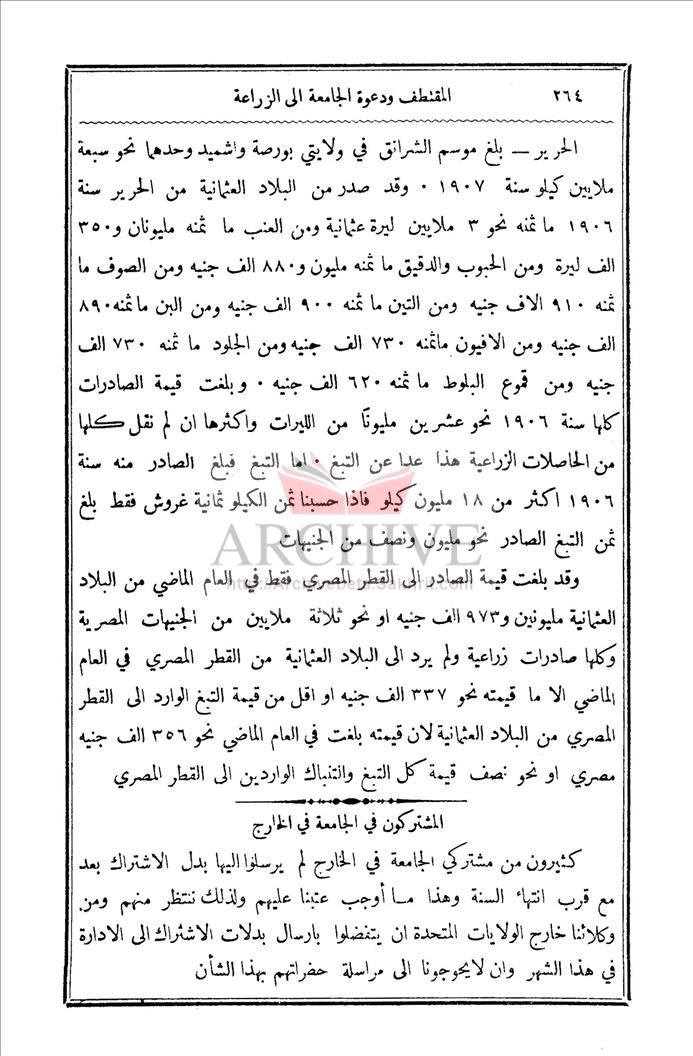 ٢٦٤ المقتطف ودعوة الجامعة الى الزراعة
الحرير — بلغ موسم الشرانق في ولايتي بورصة واشميد وحدهما نحو سبعة
ملايين كيلو سنة ١٩٠٧ ٠ وقد صدر من البلاد العثمانية من الحرير سنة
١٩٠٦ ما ثمنه نحو ٣ ملايين ليرة عثمانية ومن العنب ما ثمنه مليونان و٣٥٠
الف ليرة ومن الحبوب والدقيق ما ثمنه مليون و٨٨٠ الف جنيه ومن الصوف ما
ثمنه ٩١٠ الاف جنيه ومن التين ما ثمنه ٩٠٠ الف جنيه ومن البن ما ثمنه ٨٩٠
الف جنيه ومن الافيون ماثمنه ٧٣٠ الف جنيه ومن الجلود ما ثمنه ٧٣٠ الف
جنيه ومن قموع البلوط ما ثمنه ٦٢٠ الف جنيه ٠ وبلغت قيمة الصادرات
كلها سنة ١٩٠٦ نحو عشرين مليونًا من الليرات واكثرها ان لم نقل كلها
من الحاصلات الزراعية هذا عدا عن التبغ ٠ اما التبغ فبلغ الصادر منه سنة
١٩٠٦ اكثر من ١٨ مليون كيلو فاذا حسبنا ثمن الكيلو ثمانية غروش فقط بلغ
ثمن التبغ الصادر نحو مليون ونصف من الجنيهات
ARCHIVE
وقد بلغت قيمة الصادر الى القطر المصري فقط في العام الماضي من البلاد
http://Archivebeta.Sakhrit.com
العثمانية مليونين و٩٧٣ الف جنيه او نحو ثلاثة ملايين من الجنيهات المصرية
وكلها صادرات زراعية ولم يرد الى البلاد العثمانية من القطر المصري في العام
الماضي الا ما قيمته نحو ٣٣٧ الف جنيه او اقل من قيمة التبغ الوارد الى القطر
المصري من البلاد العثمانية لان قيمته بلغت في العام الماضي نحو ٣٥٦ الف جنيه
مصري او نحو نصف قيمة كل التبغ والتنباك الواردين الى القطر المصري
المشتركون في الجامعة في الخارج
كثيرون من مشتركي الجامعة في الخارج لم يرسلوا اليها بدل الاشتراك بعد
مع قرب انتهاء السنة وهذا مـا أوجب عتبنا عليهم ولذلك ننتظر منهم ومن
وكلائنا خارج الولايات المتحدة ان يتفضلوا بارسال بدلات الاشتراك الى الادارة
في هذا الشهر وان لايحوجونا الى مراسلة حضراتهم بهذا الشأن